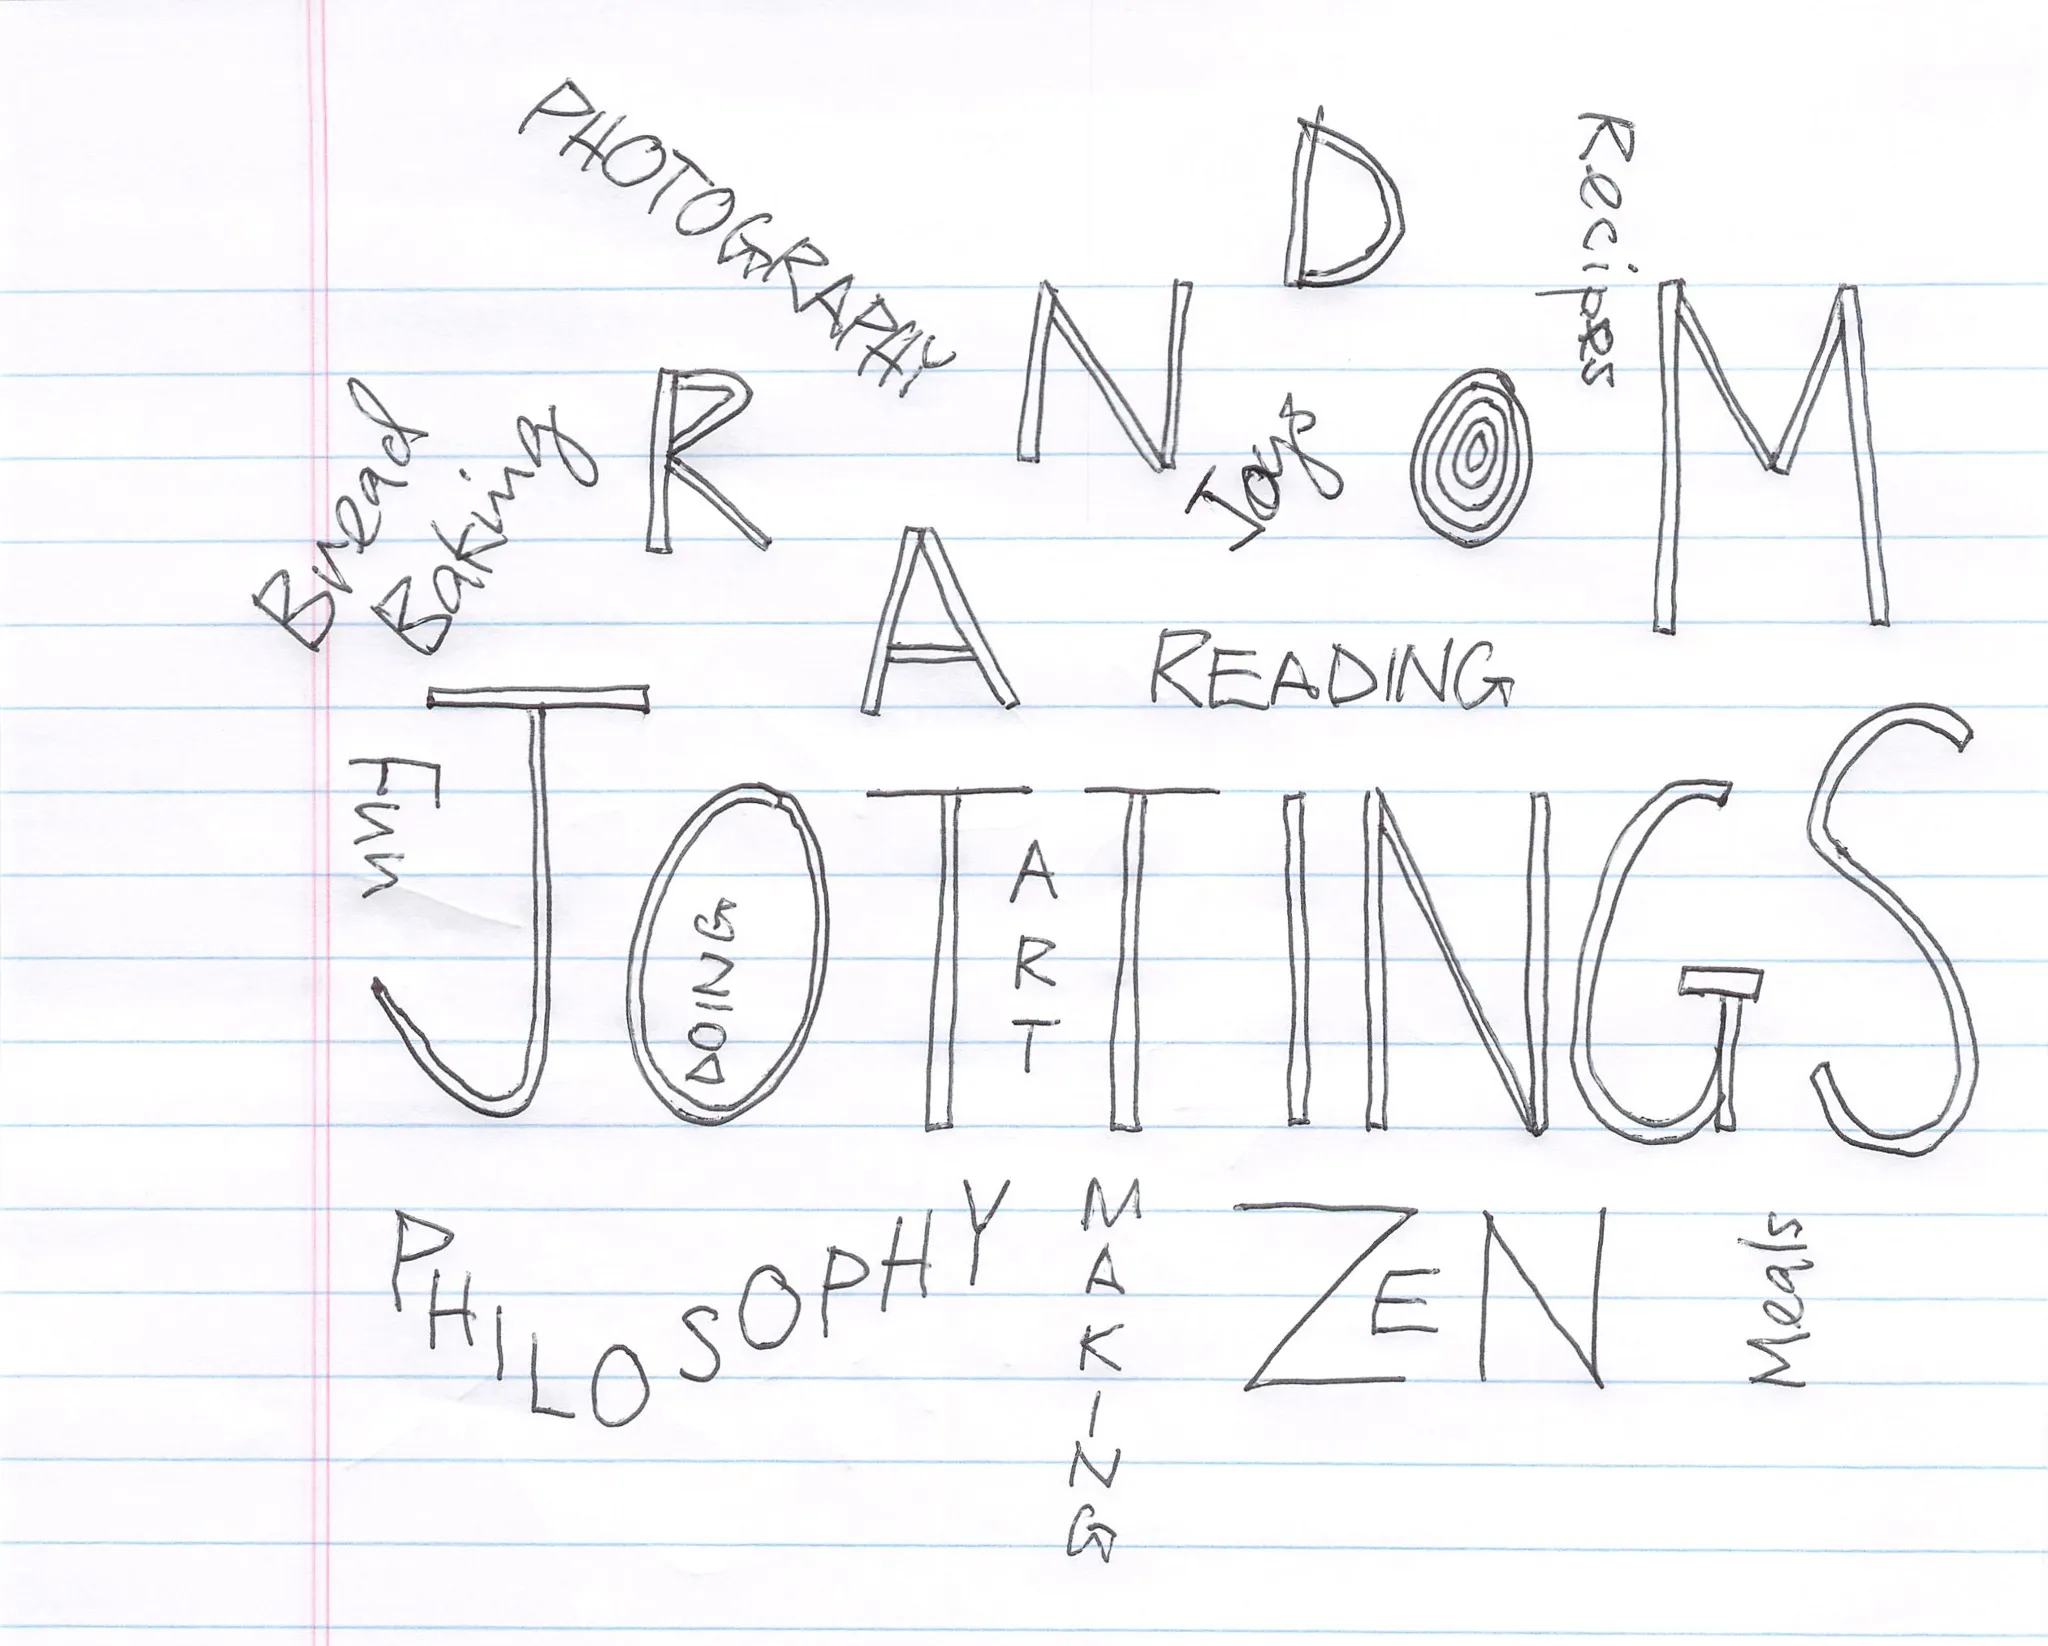 PHOTOGRAPHY
Recipes
RANDOM
Bread
Baking
Joys
READING
Fun
JOTTINGS
DOING
ART
PHILOSOPHY
MAKING
ZEN
Meals